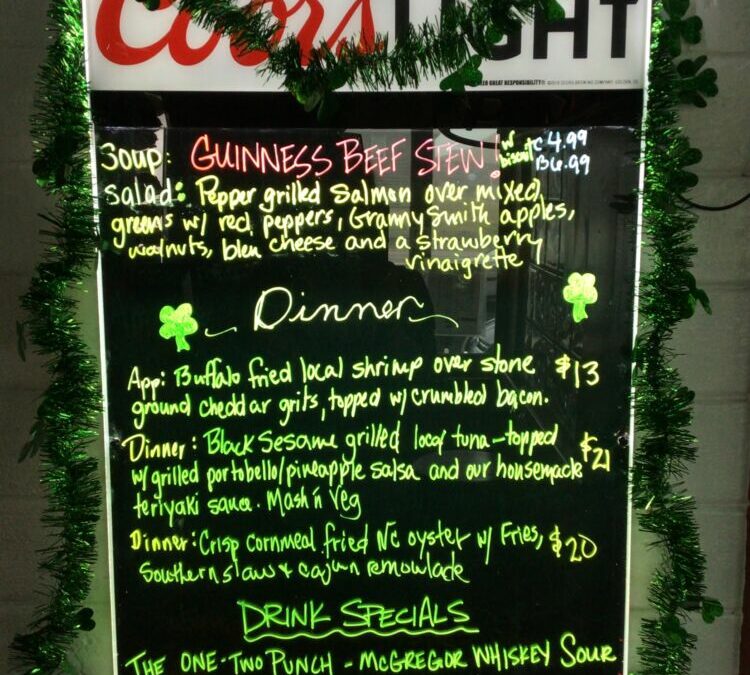 Coors LIGHT
GREAT RESPONSIBILITY®
Soup: GUINNESS BEEF STEW! w/ biscuit C 4.99
B 6.99
Salad: Pepper grilled Salmon over mixed
greens w/ red peppers, Granny Smith apples,
walnuts, bleu cheese and a strawberry
vinaigrette
Dinner
App: Buffalo fried local shrimp over stone $13
ground cheddar grits, topped w/ crumbled bacon.
Dinner: Black Sesame grilled local tuna - topped $21
w/ grilled portobello/pineapple salsa and our housemade
teriyaki sauce. Mash n' Veg
Dinner: Crisp cornmeal fried NC oyster w/ Fries, $20
Southern slaw + cajun remoulade
DRINK SPECIALS
THE ONE-TWO PUNCH - MCGREGOR WHISKEY SOUR